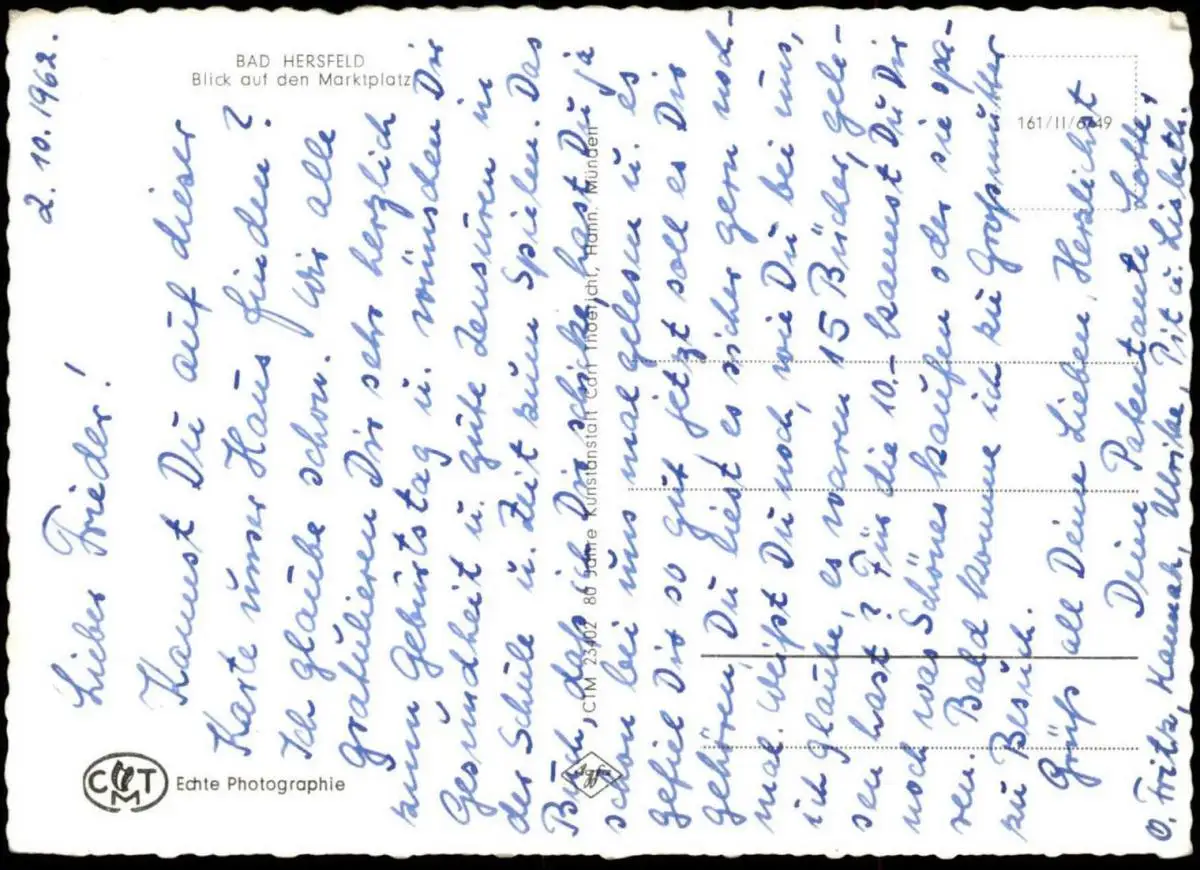 BAD HERSFELD
Blick auf den Marktplatz
161/II/6749
CTM 23402 80 Jahre Kunstanstalt Carl Thoericht, Hann. Münden
Agfa
CTM
Echte Photographie
2. 10. 1962.
Lieber Frieder!
Kannst Du auf dieser
Karte unser Haus finden?
Ich glaube schon. Wir alle
gratulieren Dir sehr herzlich
zum Geburtstag u. wünschen Dir
Gesundheit u. gute Zensuren in
der Schule u. Zeit zum Spielen. Das
Buch, das ich Dir schicke, hast Du ja
schon bei uns mal gelesen u. es
gefiel Dir so gut jetzt soll es Dir
gehören, Du liest es sicher gern noch-
mal. Weißt Du noch, wie Du bei uns,
ich glaube, es waren 15 Bücher, gele-
sen hast? Für die 10.- kannst Du Dir
noch was Schönes kaufen oder sie spa-
ren. Bald komme ich zu Großmutter
zu Besuch.
Grüß all Deine Lieben, Herzlichst
Deine Patentante Lotte,
O. Fritz, Hannah, Ulrike, Pit u. Lisbeth.